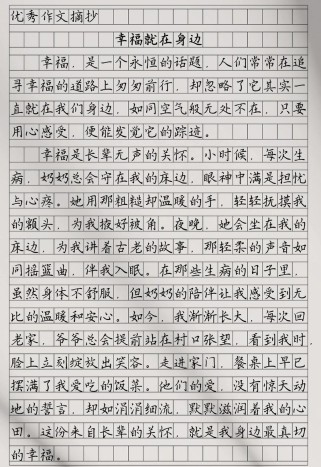 优秀作文摘抄
幸福就在身边
幸福，是一个永恒的话题，人们常常在追
寻幸福的道路上匆匆前行，却忽略了它其实一
直就在我们身边，如同空气般无处不在，只要
用心感受，便能发觉它的踪迹。
幸福是长辈无声的关怀。小时候，每次生
病，奶奶总会守在我的床边，眼神中满是担忧
与心疼。她用那粗糙却温暖的手，轻轻抚摸我
的额头，为我掖好被角。夜晚，她会坐在我的
床边，为我讲着古老的故事，那轻柔的声音如
同摇篮曲，伴我入眠。在那些生病的日子里，
虽然身体不舒服，但奶奶的陪伴让我感受到无
比的温暖和安心。如今，我渐渐长大，每次回
老家，爷爷总会提前站在村口张望，看到我时，
脸上立刻绽放出笑容。走进家门，餐桌上早已
摆满了我爱吃的饭菜。他们的爱，没有惊天动
地的誓言，却如涓涓细流，默默滋润着我的心
田。这份来自长辈的关怀，就是我身边最真切
的幸福。